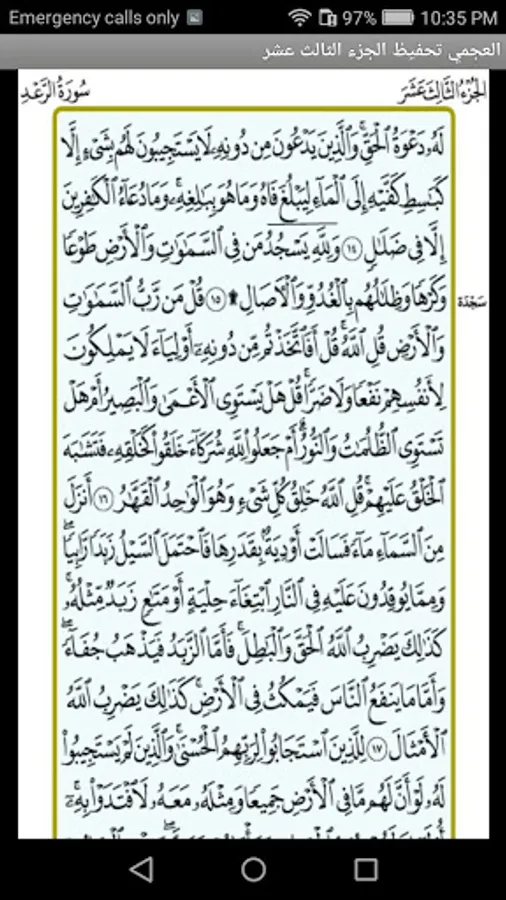 Emergency calls only 97% 10:35 PM
العجمي تحفيظ الجزء الثالث عشر
الجُزْءُ الثَّالِثَ عَشَرَ سُورَةُ الرَّعْدِ
لَهُۥ دَعْوَةُ ٱلْحَقِّ ۖ وَٱلَّذِينَ يَدْعُونَ مِن دُونِهِۦ لَا يَسْتَجِيبُونَ لَهُم بِشَىْءٍ إِلَّا
كَبَـٰسِطِ كَفَّيْهِ إِلَى ٱلْمَآءِ لِيَبْلُغَ فَاهُ وَمَا هُوَ بِبَـٰلِغِهِۦ ۚ وَمَا دُعَآءُ ٱلْكَـٰفِرِينَ
إِلَّا فِى ضَلَـٰلٍ ١٤ وَلِلَّهِ يَسْجُدُ مَن فِى ٱلسَّمَـٰوَٰتِ وَٱلْأَرْضِ طَوْعًا
وَكَرْهًا وَظِلَـٰلُهُم بِٱلْغُدُوِّ وَٱلْـَٔاصَالِ ۩ ١٥ قُلْ مَن رَّبُّ ٱلسَّمَـٰوَٰتِ
سَجْدَة
وَٱلْأَرْضِ قُلِ ٱللَّهُ ۚ قُلْ أَفَٱتَّخَذْتُم مِّن دُونِهِۦٓ أَوْلِيَآءَ لَا يَمْلِكُونَ
لِأَنفُسِهِمْ نَفْعًا وَلَا ضَرًّا ۚ قُلْ هَلْ يَسْتَوِى ٱلْأَعْمَىٰ وَٱلْبَصِيرُ أَمْ هَلْ
تَسْتَوِى ٱلظُّلُمَـٰتُ وَٱلنُّورُ ۗ أَمْ جَعَلُوا۟ لِلَّهِ شُرَكَآءَ خَلَقُوا۟ كَخَلْقِهِۦ فَتَشَـٰبَهَ
ٱلْخَلْقُ عَلَيْهِمْ ۚ قُلِ ٱللَّهُ خَـٰلِقُ كُلِّ شَىْءٍ وَهُوَ ٱلْوَٰحِدُ ٱلْقَهَّـٰرُ ١٦ أَنزَلَ
مِنَ ٱلسَّمَآءِ مَآءً فَسَالَتْ أَوْدِيَةٌۢ بِقَدَرِهَا فَٱحْتَمَلَ ٱلسَّيْلُ زَبَدًا رَّابِيًا ۚ
وَمِمَّا يُوقِدُونَ عَلَيْهِ فِى ٱلنَّارِ ٱبْتِغَآءَ حِلْيَةٍ أَوْ مَتَـٰعٍ زَبَدٌ مِّثْلُهُۥ ۚ
كَذَٰلِكَ يَضْرِبُ ٱللَّهُ ٱلْحَقَّ وَٱلْبَـٰطِلَ ۚ فَأَمَّا ٱلزَّبَدُ فَيَذْهَبُ جُفَآءً ۖ
وَأَمَّا مَا يَنفَعُ ٱلنَّاسَ فَيَمْكُثُ فِى ٱلْأَرْضِ ۚ كَذَٰلِكَ يَضْرِبُ ٱللَّهُ
ٱلْأَمْثَالَ ١٧ لِلَّذِينَ ٱسْتَجَابُوا۟ لِرَبِّهِمُ ٱلْحُسْنَىٰ ۚ وَٱلَّذِينَ لَمْ يَسْتَجِيبُوا۟
لَهُۥ لَوْ أَنَّ لَهُم مَّا فِى ٱلْأَرْضِ جَمِيعًا وَمِثْلَهُۥ مَعَهُۥ لَٱفْتَدَوْا۟ بِهِۦٓ ۚ